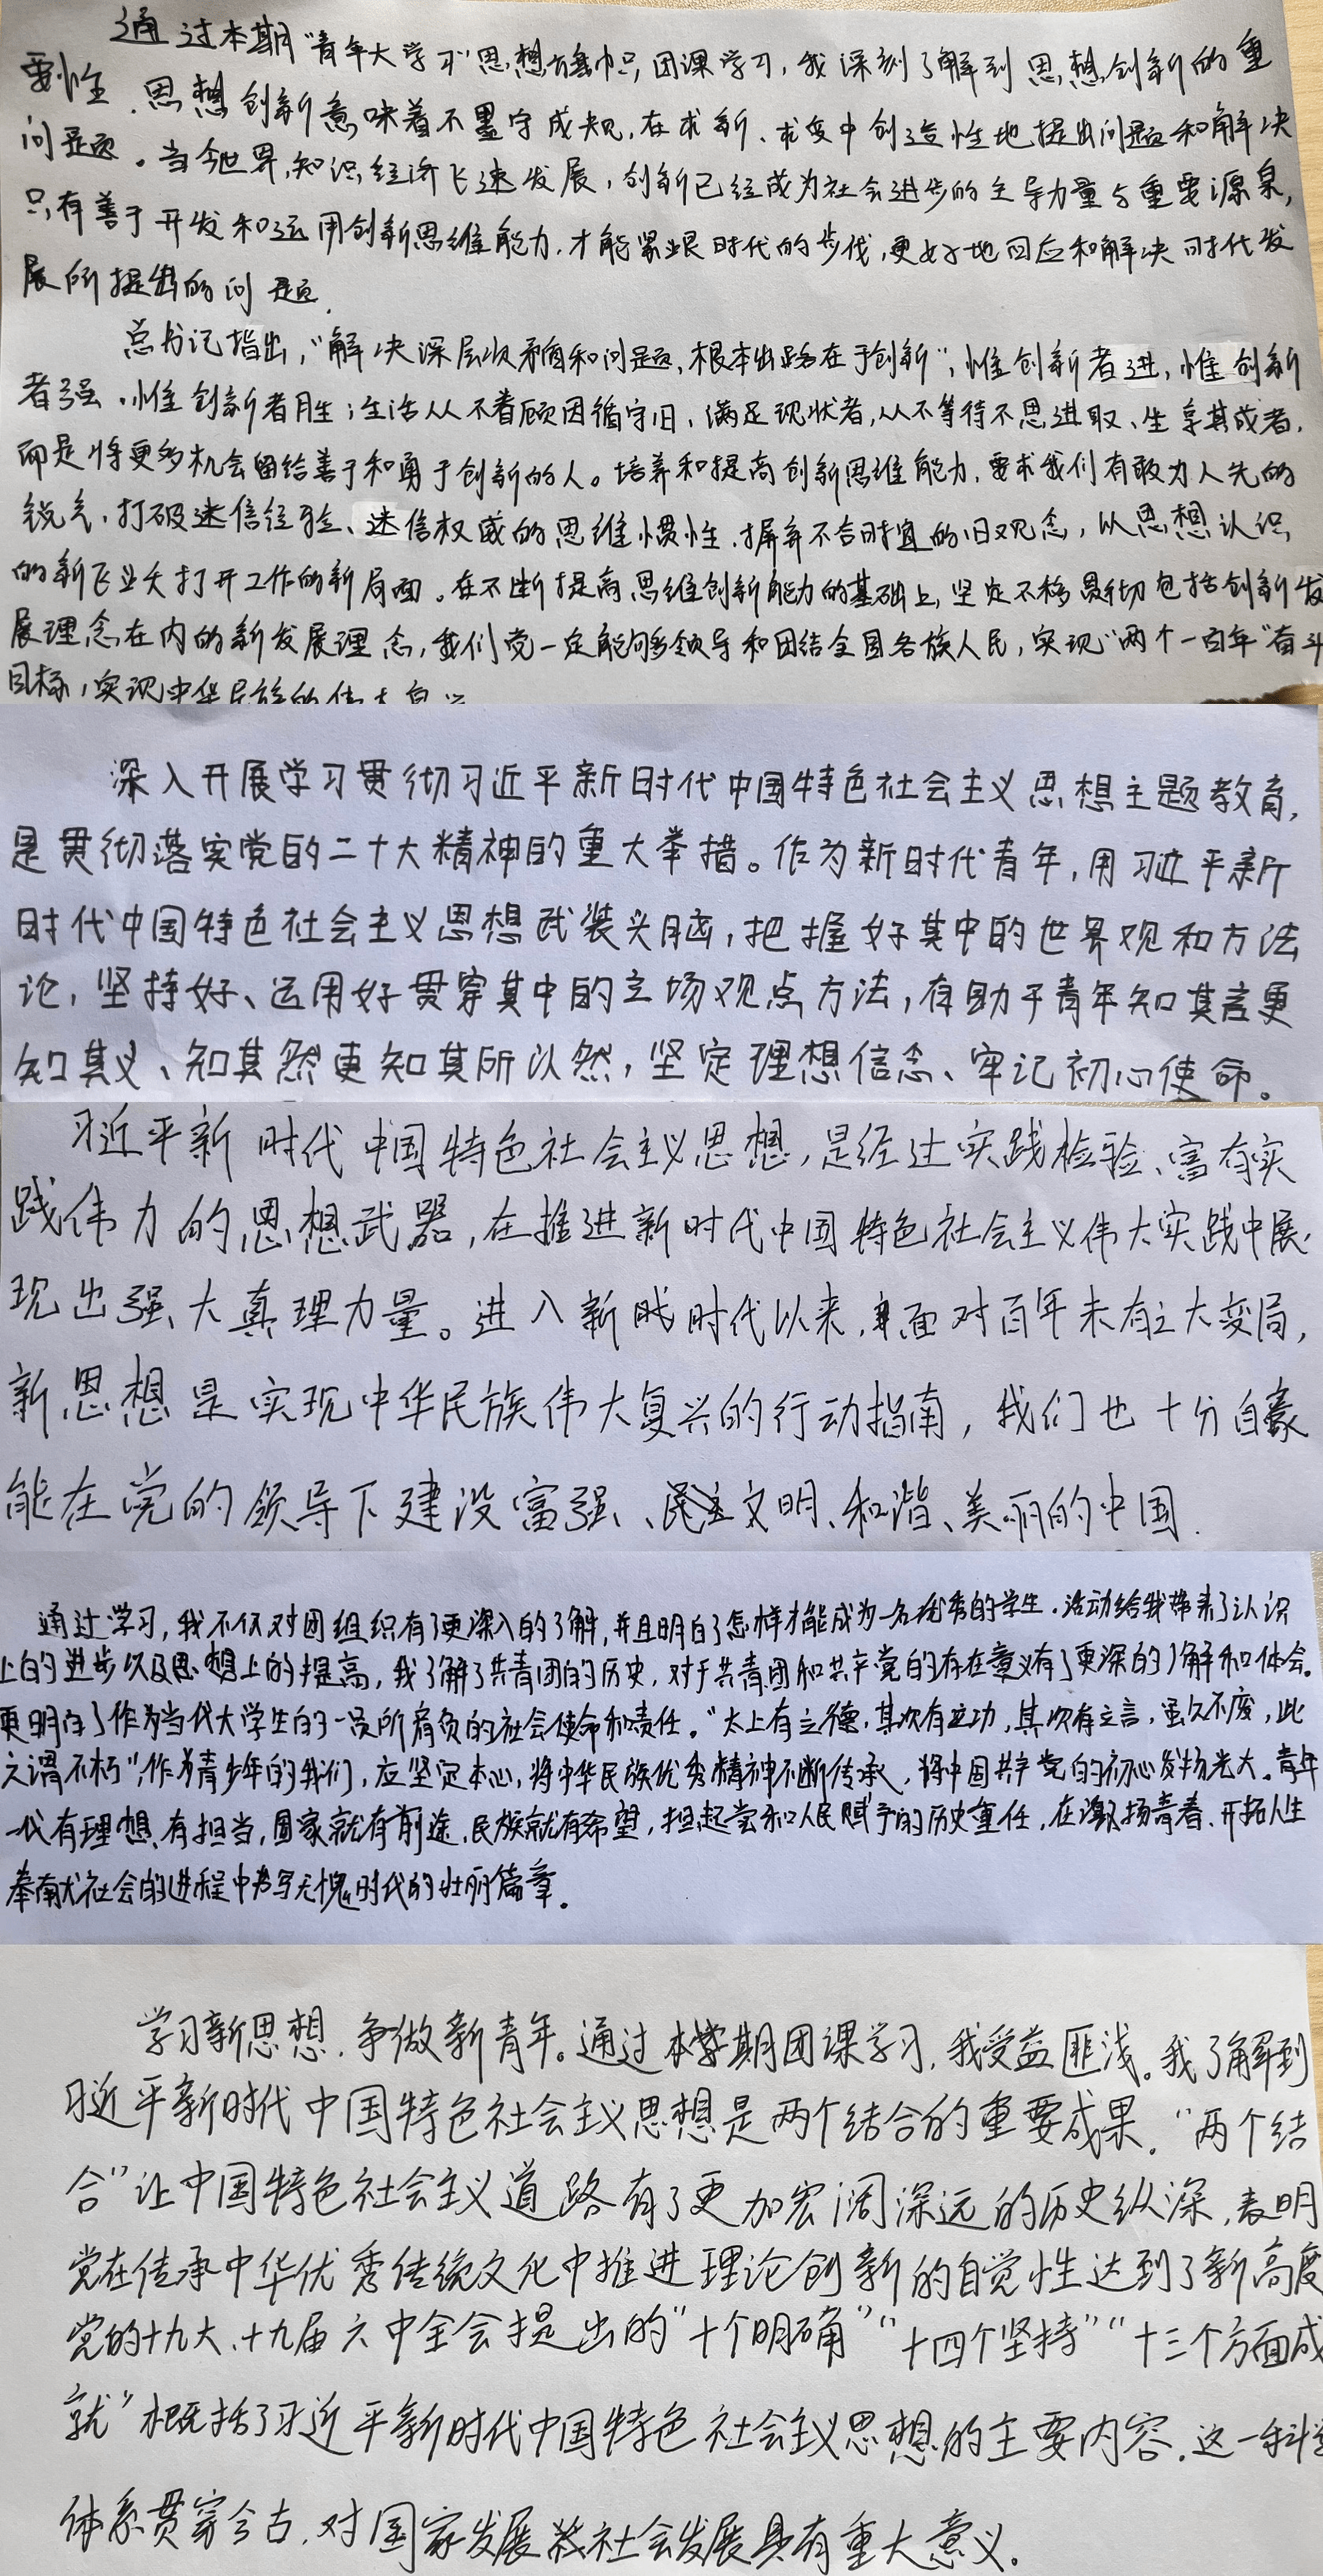 通过本期“青年大学习”思想旗帜,团课学习,我深刻了解到思想创新的重
要性.思想创新意味着不墨守成规,在求新、求变中创造性地提出问题和解决
问题。当今世界,知识经济飞速发展,创新已经成为社会进步的主导力量与重要源泉,
只有善于开发和运用创新思维能力,才能紧跟时代的步伐,更好地回应和解决时代发
展所提出的问题.
总书记指出,“解决深层次矛盾和问题,根本出路在于创新”,惟创新者进,惟创新
者强.惟创新者胜;生活从不眷顾因循守旧、满足现状者,从不等待不思进取、坐享其成者,
而是将更多机会留给善于和勇于创新的人。培养和提高创新思维能力,要求我们有敢为人先的
锐气,打破迷信经验、迷信权威的思维惯性.摒弃不合时宜的旧观念,以思想认识
的新飞跃打开工作的新局面。在不断提高思维创新能力的基础上,坚定不移贯彻包括创新发
展理念在内的新发展理念,我们党一定能够领导和团结全国各族人民,实现“两个一百年”奋斗
目标,实现中华民族的伟大复兴
深入开展学习贯彻习近平新时代中国特色社会主义思想主题教育,
是贯彻落实党的二十大精神的重大举措。作为新时代青年,用习近平新
时代中国特色社会主义思想武装头脑,把握好其中的世界观和方法
论,坚持好、运用好贯穿其中的立场观点方法,有助于青年知其言更
知其义、知其然更知其所以然,坚定理想信念、牢记初心使命。
习近平新时代中国特色社会主义思想,是经过实践检验、富有实
践伟力的思想武器,在推进新时代中国特色社会主义伟大实践中展
现出强大真理力量。进入新时代以来,面对百年未有之大变局,
新思想是实现中华民族伟大复兴的行动指南,我们也十分自豪
能在党的领导下建设富强、民主文明、和谐、美丽的中国.
通过学习,我不仅对团组织有了更深入的了解,并且明白了怎样才能成为一名优秀的学生.活动给我带来了认识
上的进步以及思想上的提高,我了解了共青团的历史,对于共青团和共产党的存在意义有了更深的了解和体会。
更明白了作为当代大学生的一员所肩负的社会使命和责任。“太上有立德,其次有立功,其次有立言,虽久不废,此
之谓不朽”,作为青少年的我们,应坚定本心,将中华民族优秀精神不断传承,将中国共产党的初心发扬光大。青年
一代有理想、有担当,国家就有前途,民族就有希望,担起党和人民赋予的历史重任,在激扬青春、开拓人生
奉献社会的进程中书写无愧时代的壮丽篇章。
学习新思想,争做新青年。通过本学期团课学习,我受益匪浅。我了解到
习近平新时代中国特色社会主义思想是两个结合的重要成果.“两个结
合”让中国特色社会主义道路有了更加宏阔深远的历史纵深,表明
党在传承中华优秀传统文化中推进理论创新的自觉性达到了新高度
党的十九大、十九届六中全会提出的“十个明确”“十四个坚持”“十三个方面成
就”概括了习近平新时代中国特色社会主义思想的主要内容.这一科学
体系贯穿今古,对国家发展社会发展具有重大意义。